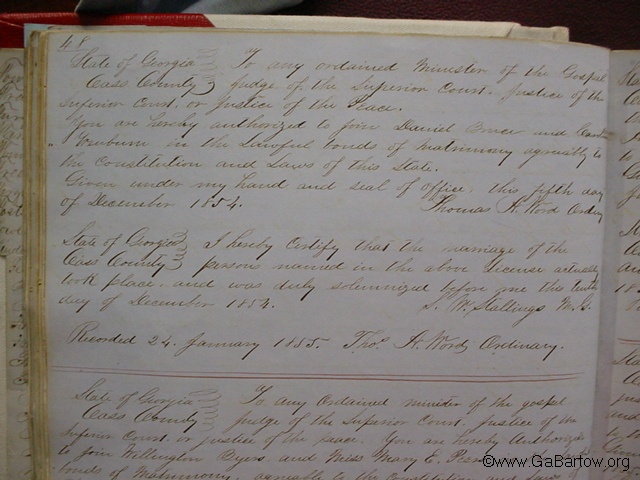 48
State of Georgia To any ordained Minister of the Gospel
Cass County judge of the Superior Court. Justice of the
Inferior Court. or justice of the Peace.
You are hereby authorized to join Daniel and
in the Lawful bonds of matrimony agreeably to
the Constitution and Laws of this State.
Given under my hand and seal of office. this fifth day
of December 1854. Thomas A. Word Ordny
State of Georgia I hereby Certify that the marriage of the
Cass County persons named in the above License actually
took place. and was duly solemnized before me this
day of December 1854. S. W. Stallings M. G.
Recorded 24. January 1855. Thos. A. Word Ordinary.
State of Georgia To any Ordained minister of the gospel
Cass County judge of the Superior Court. justice of the
Inferior Court. or justice of the peace. You are hereby Authorized
to join Willington Byers and Miss Mary E.
bonds of Matrimony. agreeable to the Constitution and Laws of
©www.GaBartow.org